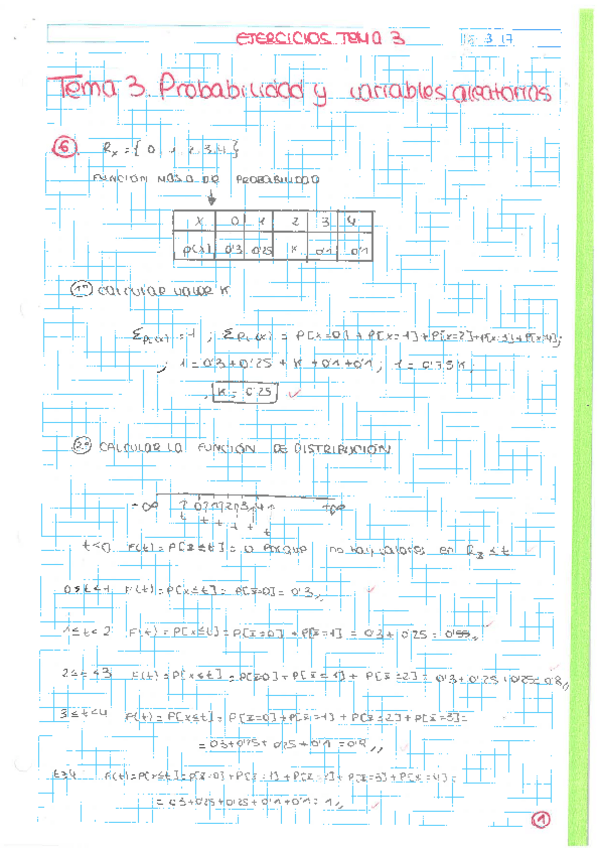 EJERCICIOS TEMA 3
Tema 3. Probabilidad y variables aleatorias
6. Rx = { 0, 1, 2, 3, 4 }
FUNCIÓN MASA DE PROBABILIDAD
X 0 1 2 3 4
P(x) 0'3 0'25 K 0'1 0'1
1º) CALCULAR VALOR K
ΣPi(x) = 1 ; ΣPi(x) = P[X=0] + P[X=1] + P[X=2] + P[X=3] + P[X=4];
; 1 = 0'3 + 0'25 + K + 0'1 + 0'1 ; 1 = 0'75K;
, K = 0'25
2º) CALCULAR LA FUNCIÓN DE DISTRIBUCIÓN
-∞ +∞
t t t t t t
t<0 F(t) = P[X≤t] = 0 porque no hay valores en Rx ≤ t
0≤t<1 F(t) = P[X≤t] = P[X=0] = 0'3,,
1≤t<2 F(t) = P[X≤t] = P[X=0] + P[X=1] = 0'3 + 0'25 = 0'55,,
F(t) = P[X≤t] = P[X=0] + P[X=1] + P[X=2] = 0'3 + 0'25 + 0'25 = 0'8,,
3≤t<4 F(t) = P[X≤t] = P[X=0] + P[X=1] + P[X=2] + P[X=3] =
= 0'3 + 0'25 + 0'25 + 0'1 = 0'9,,
t≥4 F(t) = P[X≤t] = P[X=0] + P[X=1] + P[X=2] + P[X=3] + P[X=4] =
= 0'3 + 0'25 + 0'25 + 0'1 + 0'1 = 1,,
1